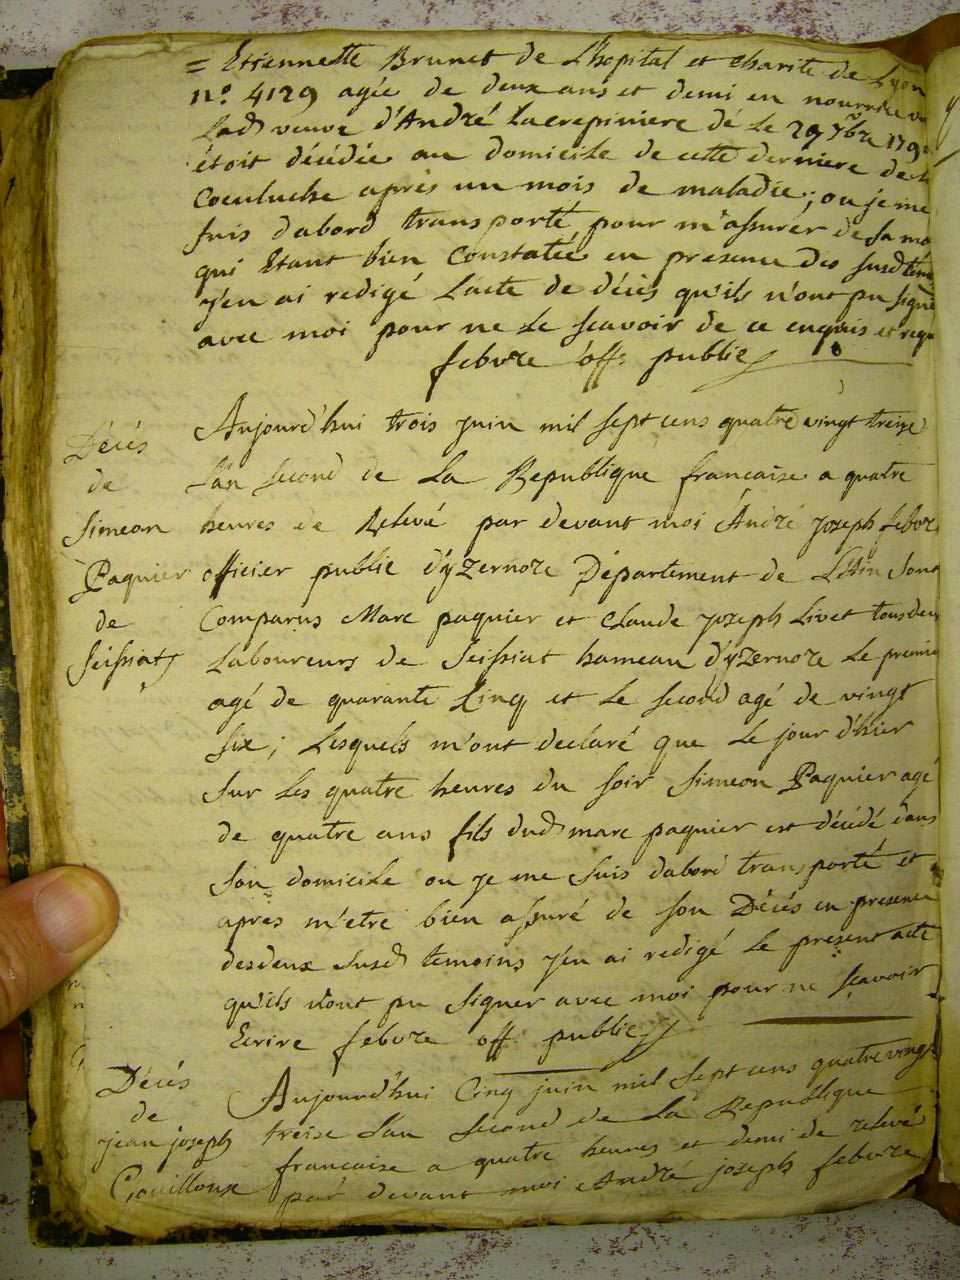 = Etiennette Brunet de L'hopital et charité de Lyon
n.o 4129 agée de deux ans et demi en nourrice
lad veuve d'André Lacrepiniere dé Le 29 7bre 179
étoit décédée au domicile de cette derniere de la
Coculuche après un mois de maladie; ou je me
suis dabord transporté pour m'assurer de sa mo
qui Etant bien Constatée en presence des susd tém
j'en ai redigé L'acte de décès qu'ils n'ont pu signé
avec moi pour ne Le scavoir de ce enquis et requ
febvre off. public
Aujourd'hui trois juin mil sept cens quatre vingt treize
L'an second de La Republique francaise a quatre
heures de Relevé par devant moi André joseph febvre
officier public d'yzernore Département de L'Ain sont
Comparus Marc paquier et claude joseph Livet tous deux
Laboureurs de Seissiat hameau d'yzernore Le premier
agé de quarante Cinq et Le second agé de vingt
six; Lesquels m'ont declaré que Le jour d'hier
sur Les quatre heures du soir Simeon Paquier agé
de quatre ans fils dud marc paquier est décédé dans
son domicile ou je me suis dabord transporté et
apres m'etre bien assuré de son Décès en presence
des deux susd temoins j'en ai redigé Le present acte
qu'ils n'ont pu signer avec moi pour ne scavoir
Ecrire febvre off public
Décès
de
Simeon
Paquier
de
Seissiat
Aujourd'hui Cinq juin mil sept cens quatre vingt
treize L'an second de La Republique
francaise a quatre heures et demi de relevé
par devant moi André joseph febvre
Décès
de
jean joseph
Gouilloux